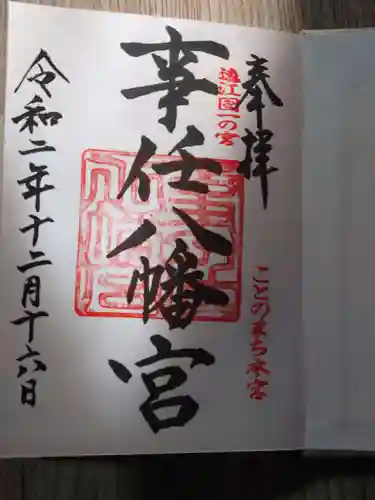 奉拝
遠江国一の宮
ことのまち本宮
事任八幡宮
令和二年十二月十六日